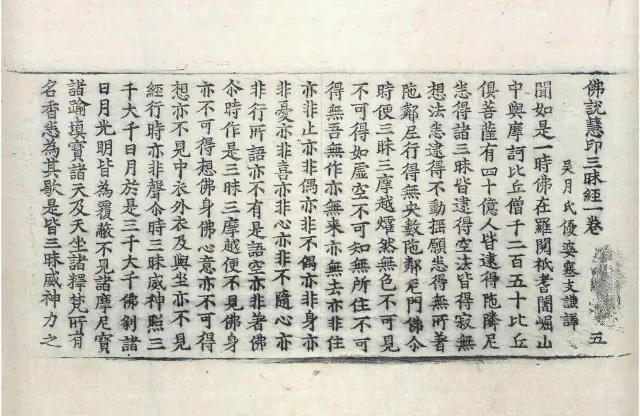 佛說慧印三昧經一卷 五
吳月氏優婆塞支謙譯
聞如是一時佛在羅閱祇耆闍崛山
中與摩訶比丘僧千二百五十比丘
俱菩薩有四十億人皆逮得陁隣尼
悉得諸三昧皆逮得空法皆得寂無
想法悉逮得不動揺願悉得無所著
陁鄰尼行得無央數陁鄰尼門佛尒
時便三昧三摩越爟然無色不可見
不可得如虛空不可知無所住不可
得無吾無作亦無來亦無去亦非住
亦非止亦非偶亦非不偶亦非身亦
非憂亦非喜亦非心亦非不隨心亦
非行所語亦不有是語空亦非著佛
尒時作是三昧三摩越便不見佛身
亦不可得想佛身佛心意亦不可得
想亦不見中衣外衣及與坐亦不見
經行時亦非聲尒時三昧威神照三
千大千日月於是三千大千佛剎諸
日月光明皆為覆蔽不見諸摩尼寶
諸踰填寶諸天及天坐諸釋梵所有
名香悉為其歇是皆三昧威神力之